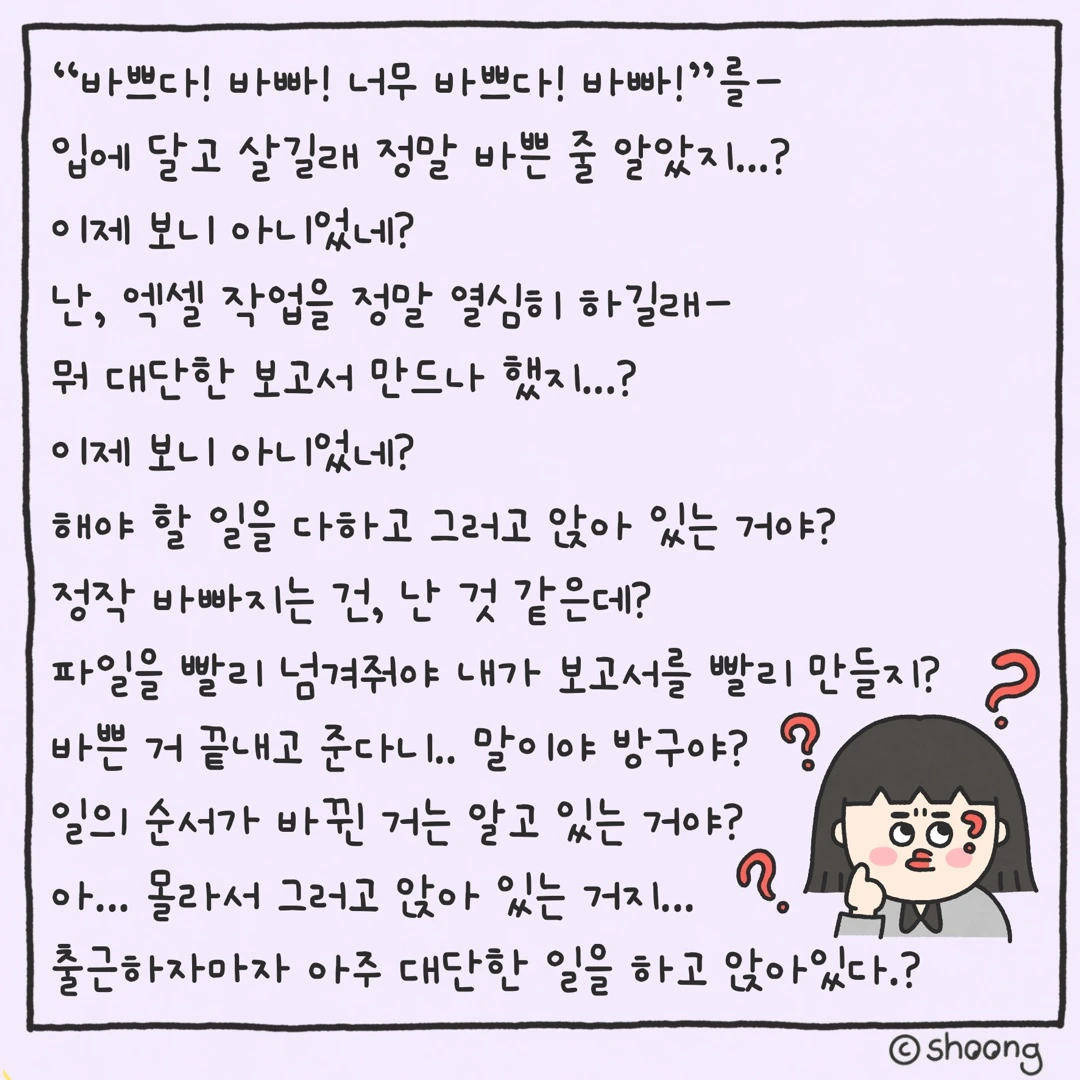 “바쁘다! 바빠! 너무 바쁘다! 바빠!”를-
입에 달고 살길래 정말 바쁜 줄 알았지...?
이제 보니 아니었네?
난, 엑셀 작업을 정말 열심히 하길래-
뭐 대단한 보고서 만드나 했지...?
이제 보니 아니었네?
해야 할 일을 다하고 그러고 앉아 있는 거야?
정작 바빠지는 건, 난 것 같은데?
파일을 빨리 넘겨줘야 내가 보고서를 빨리 만들지?
바쁜 거 끝내고 준다니.. 말이야 방구야?
일의 순서가 바뀐 거는 알고 있는 거야?
아... 몰라서 그러고 앉아 있는 거지...
출근하자마자 아주 대단한 일을 하고 앉아있다.?
? ? ? ?
©shoong